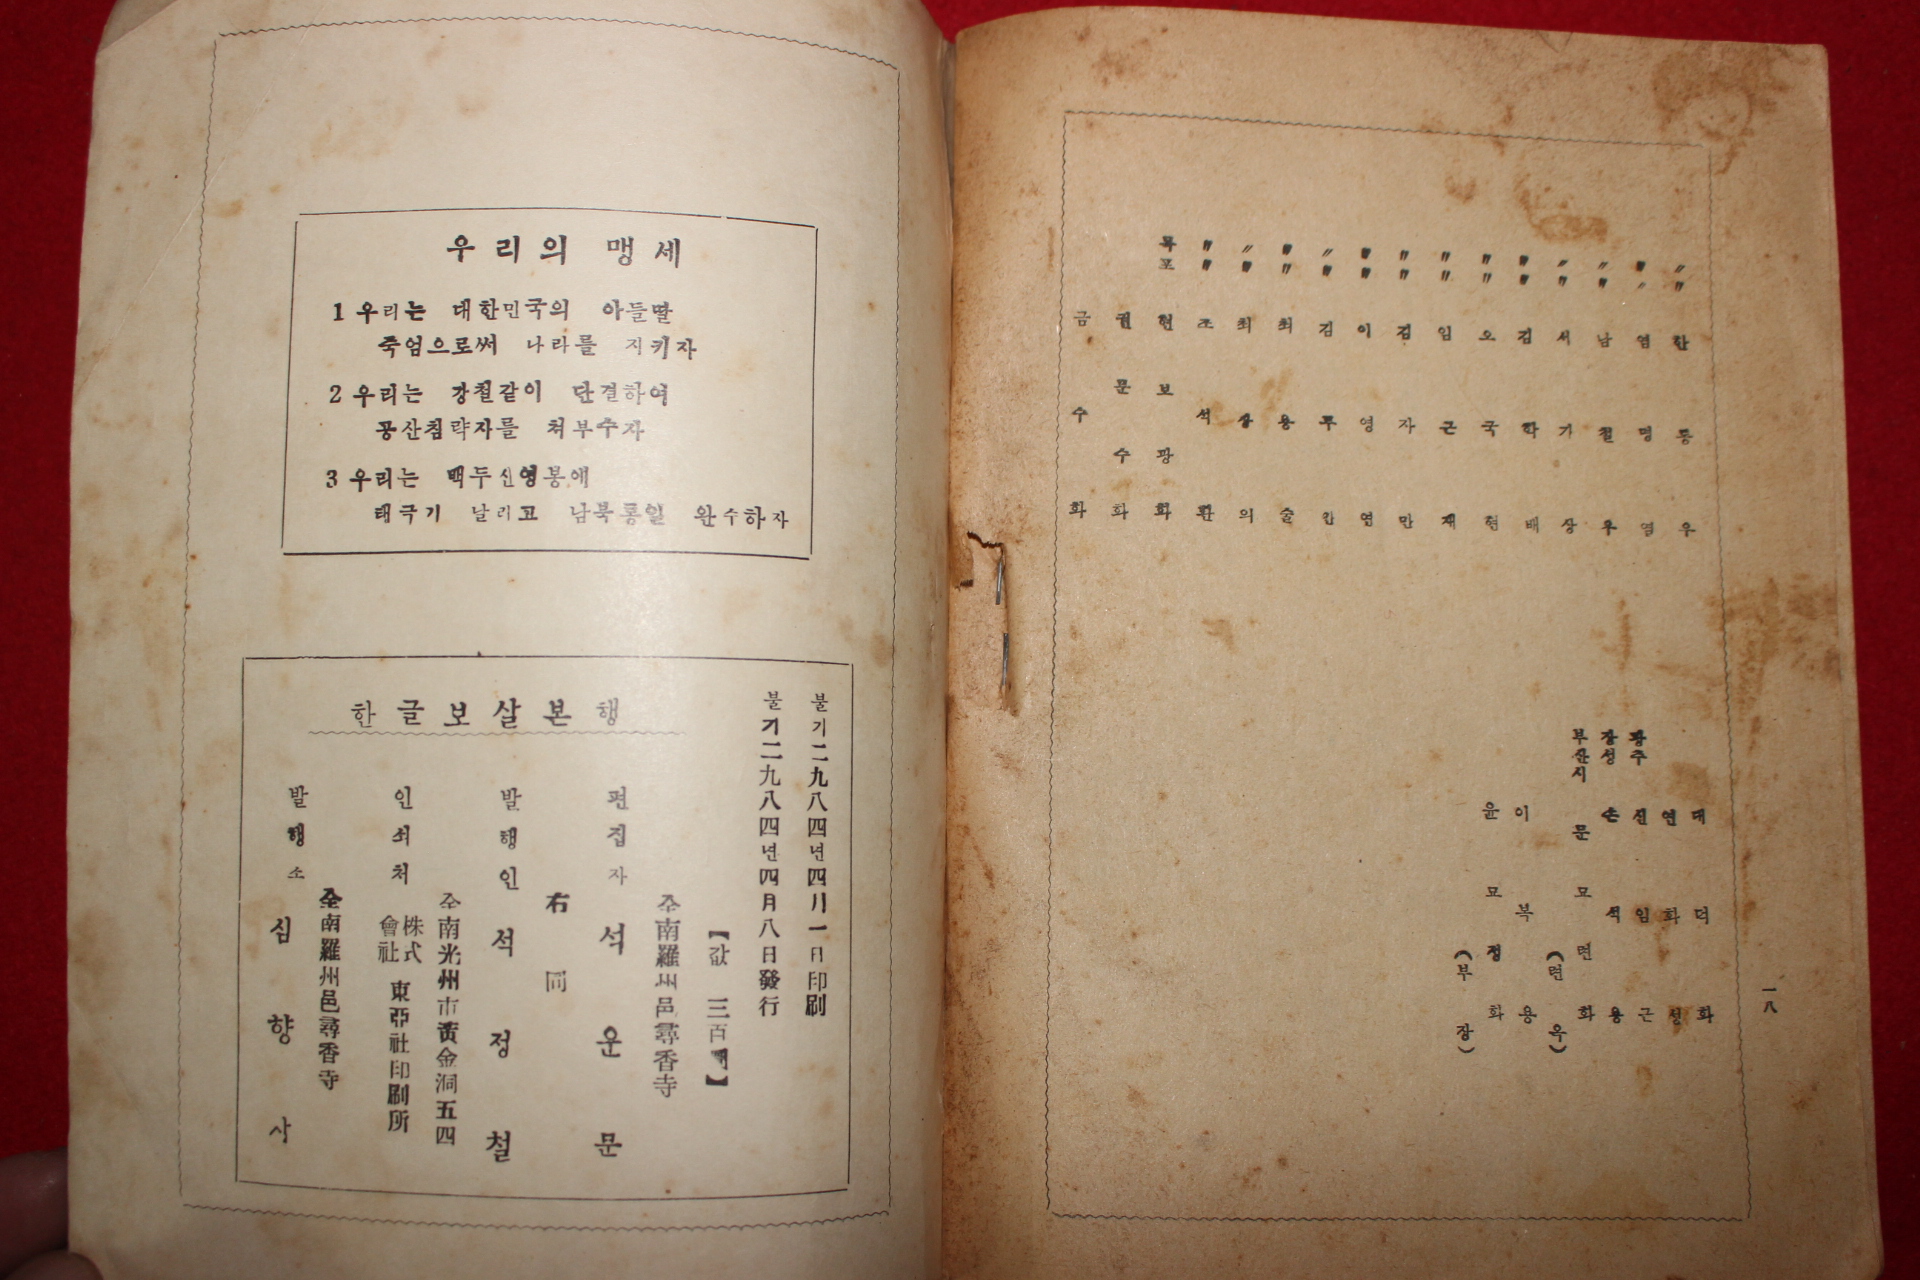 〃〃 한동우
〃〃 염명염
〃〃 남철우
〃〃 서기상
〃〃 김학배
〃〃 오국현
〃〃 임근재
〃〃 김자만
〃〃 이영연
〃〃 김두
〃〃 최용술
〃〃 최상의
〃〃 조석환
목포 현보광화
권문수화
금수화
대덕화
연화성
광주 신임근
장성 손석용
부산시 문묘련화
(련옥)
이복용
윤묘정화
(부장)
一八
우리의 맹세
1 우리는 대한민국의 아들딸
죽엄으로써 나라를 지키자
2 우리는 강철같이 단결하여
공산침략자를 처부수자
3 우리는 백두산영봉에
태극기 날리고 남북통일 완수하자
한글보살본행
불기二九八四년四月一日印刷
불기二九八四년四月八日發行
【값 三百圓】
全南羅州邑尋香寺
편집자 석운문
右同
발행인 석정철
全南光州市黃金洞五四
인쇠처 株式會社 東亞社印刷所
全南羅州邑尋香寺
발행소 심향사